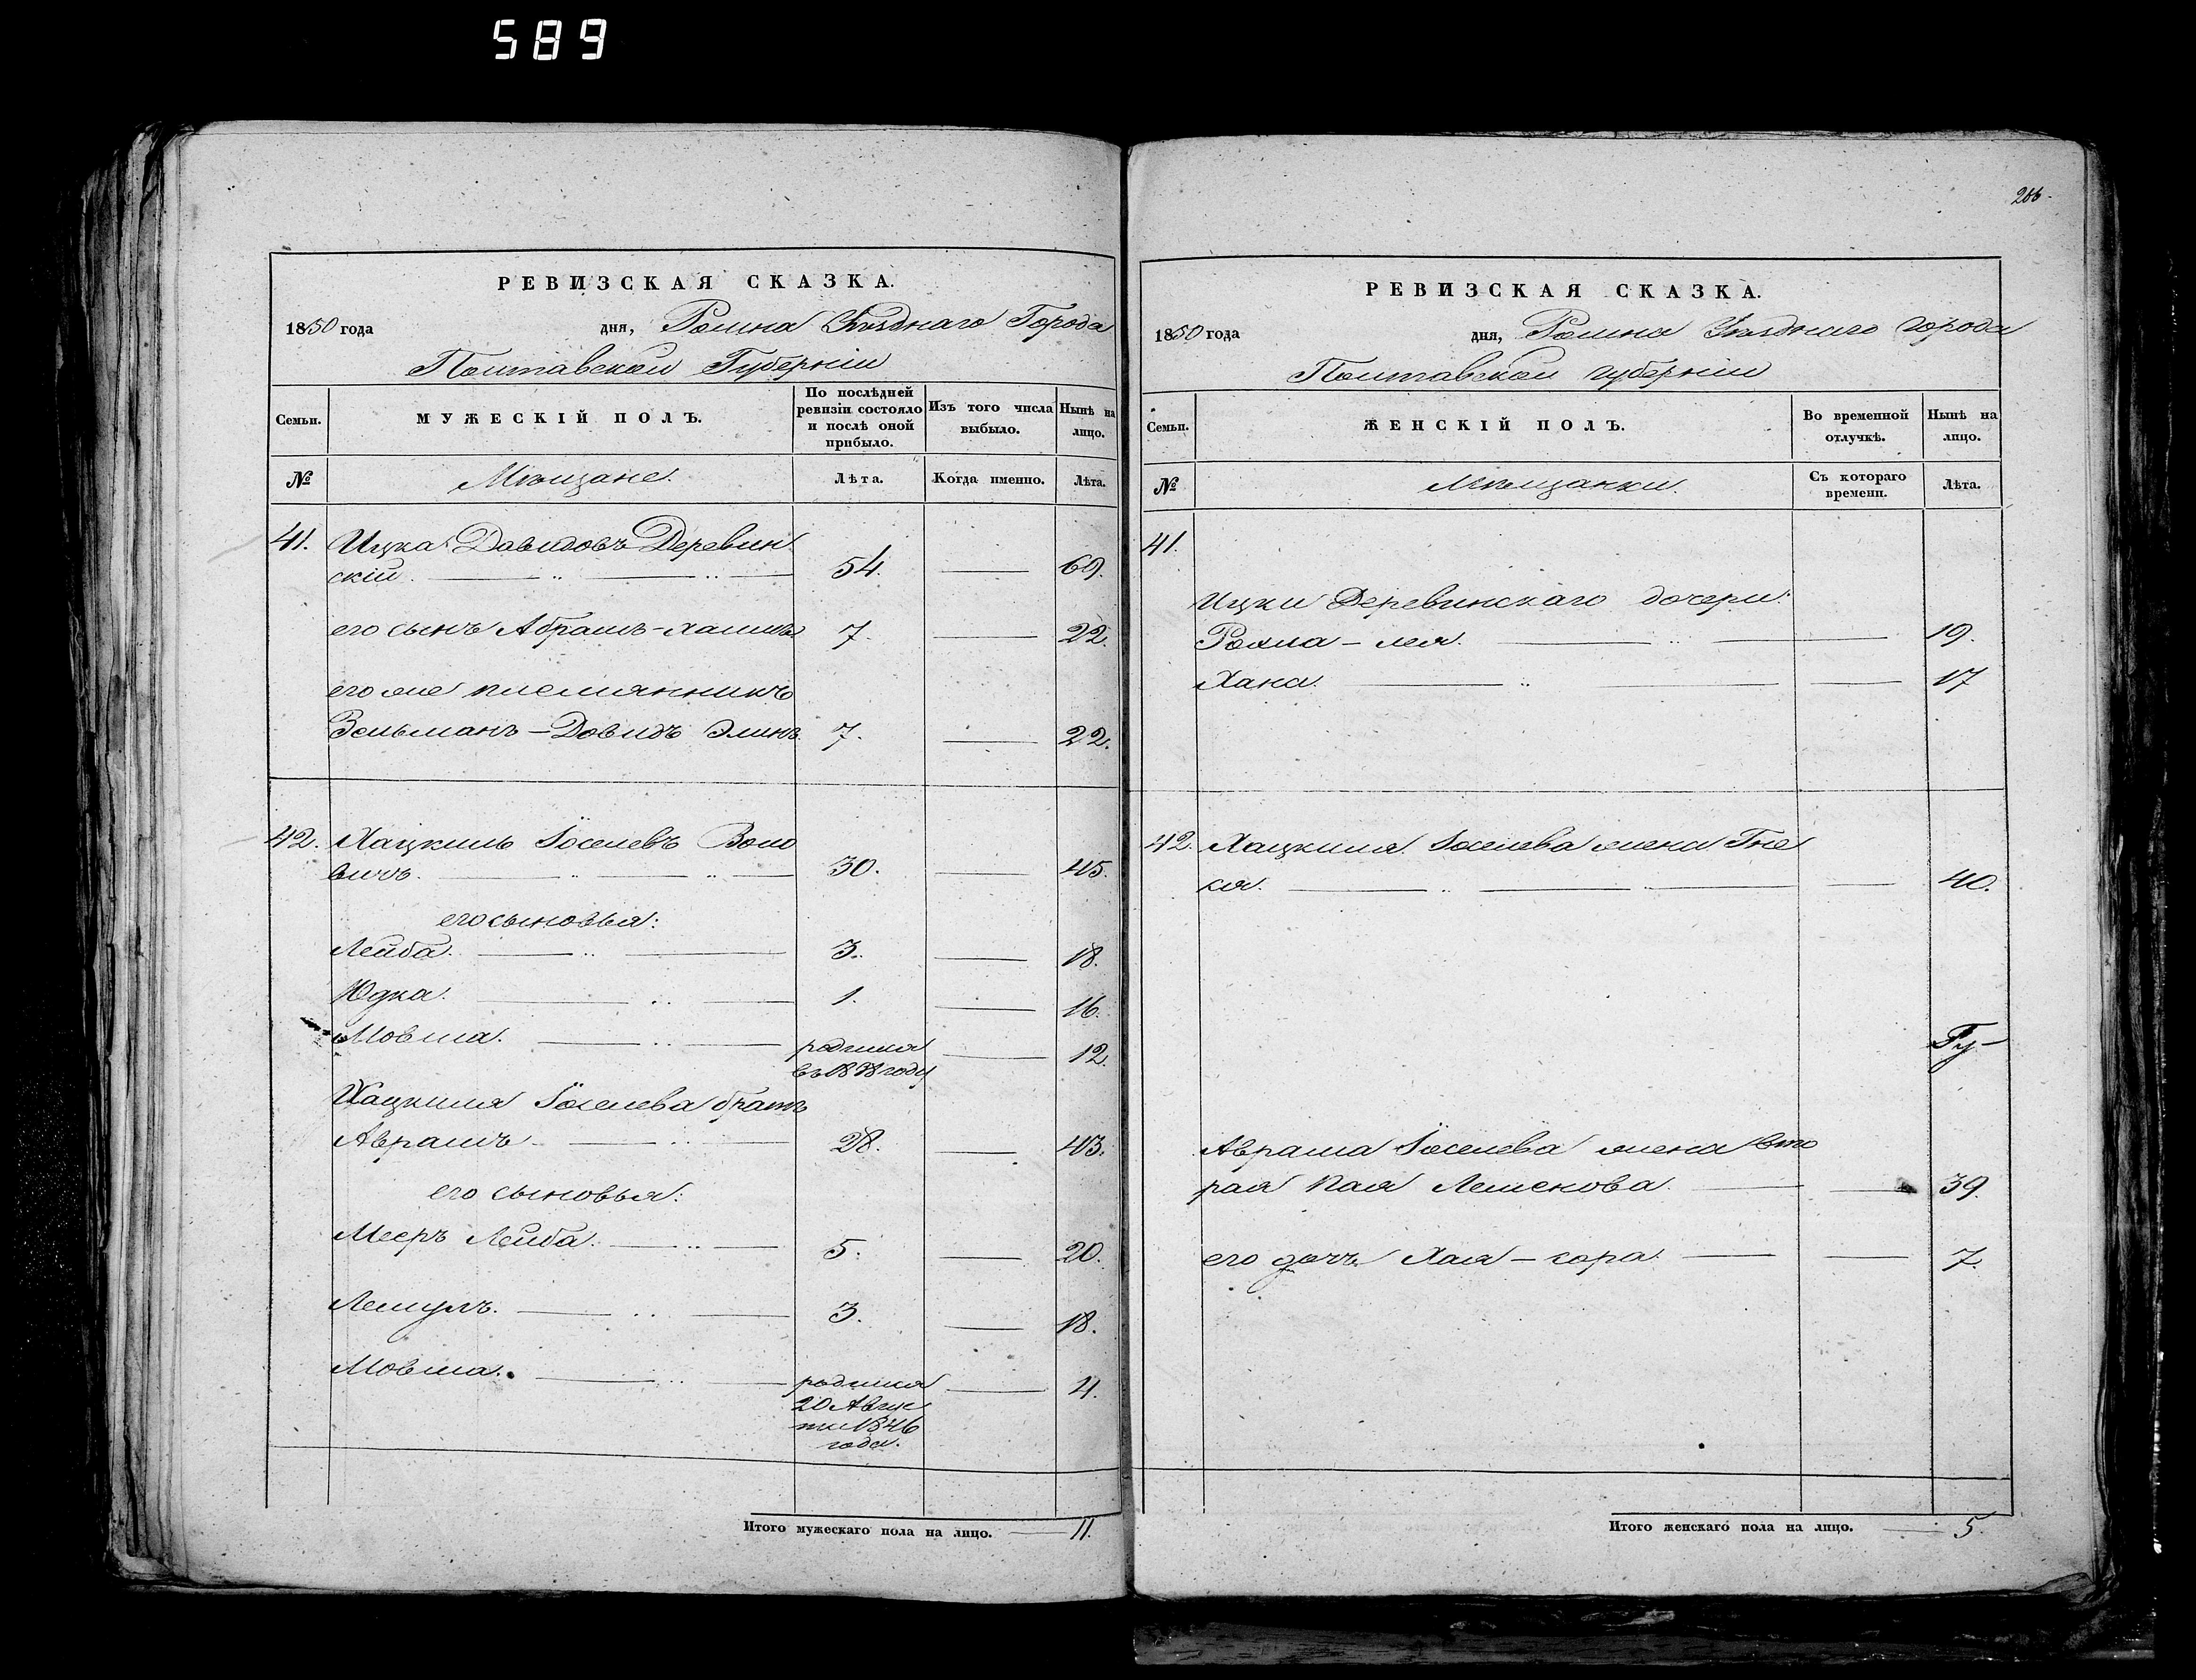 589
286.
РЕВИЗСКАЯ СКАЗКА.
1850 года дня, Ромна Уѣзднаго Города
Полтавской Губерніи
Семьи.
МУЖЕСКІЙ ПОЛЪ.
По послѣдней ревизіи состояло и послѣ оной прибыло.
Изъ того числа выбыло.
Нынѣ на лицо.
№
Мѣщане.
Лѣта.
Когда именно.
Лѣта.
41. Ицка Давидовъ Деревин
скій. 54. 69.
его сынъ Абрамъ-Хаимъ 7. 22.
его же племянникъ
Зельманъ-Довидъ Элинъ 7. 22.
42. Хацкиль Іоселевъ Воло
вичъ. 30. 45.
его сыновья:
Лейба. 3. 18.
Юдка. 1. 16.
Мовша. родился 12.
въ 1838 году
Хацкиля Іоселева братъ
Аврамъ 28. 43.
его сыновья:
Мееръ Лейба. 5. 20.
Лемулъ. 3. 18.
Мовша. родился 4.
20 Авгус
та 1846
года.
Итого мужескаго пола на лицо. 11.
РЕВИЗСКАЯ СКАЗКА.
1850 года дня, Ромна Уѣзднаго города
Полтавской губерніи
Семьи.
ЖЕНСКІЙ ПОЛЪ.
Во временной отлучкѣ.
Нынѣ на лицо.
№
Мѣщанки.
Съ котораго времени.
Лѣта.
41.
Ицки Деревинскаго дочери:
Рохла-лея. 19.
Хана. 17
42. Хацкиля Іоселева жена Гне
ся. 40.
Гу-
Аврама Іоселева жена вто
рая Кая Лемекова. 39.
его дочь Хая-сора. 7.
Итого женскаго пола на лицо. 5.